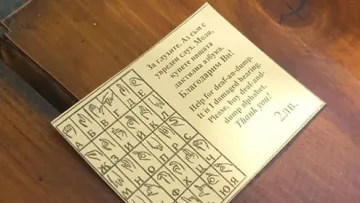 За глухите. Аз съм с
увреден слух. Моля,
купете нашата
дактилна азбука.
Благодарим Ви!
Help for deaf-an-dump.
It is I damaged hearing.
Please, buy deaf-and-
dump alphabet.
Thank you!
2лв.
А Б В Г Д Е
Ж З И Й К Л
М Н О П Р С